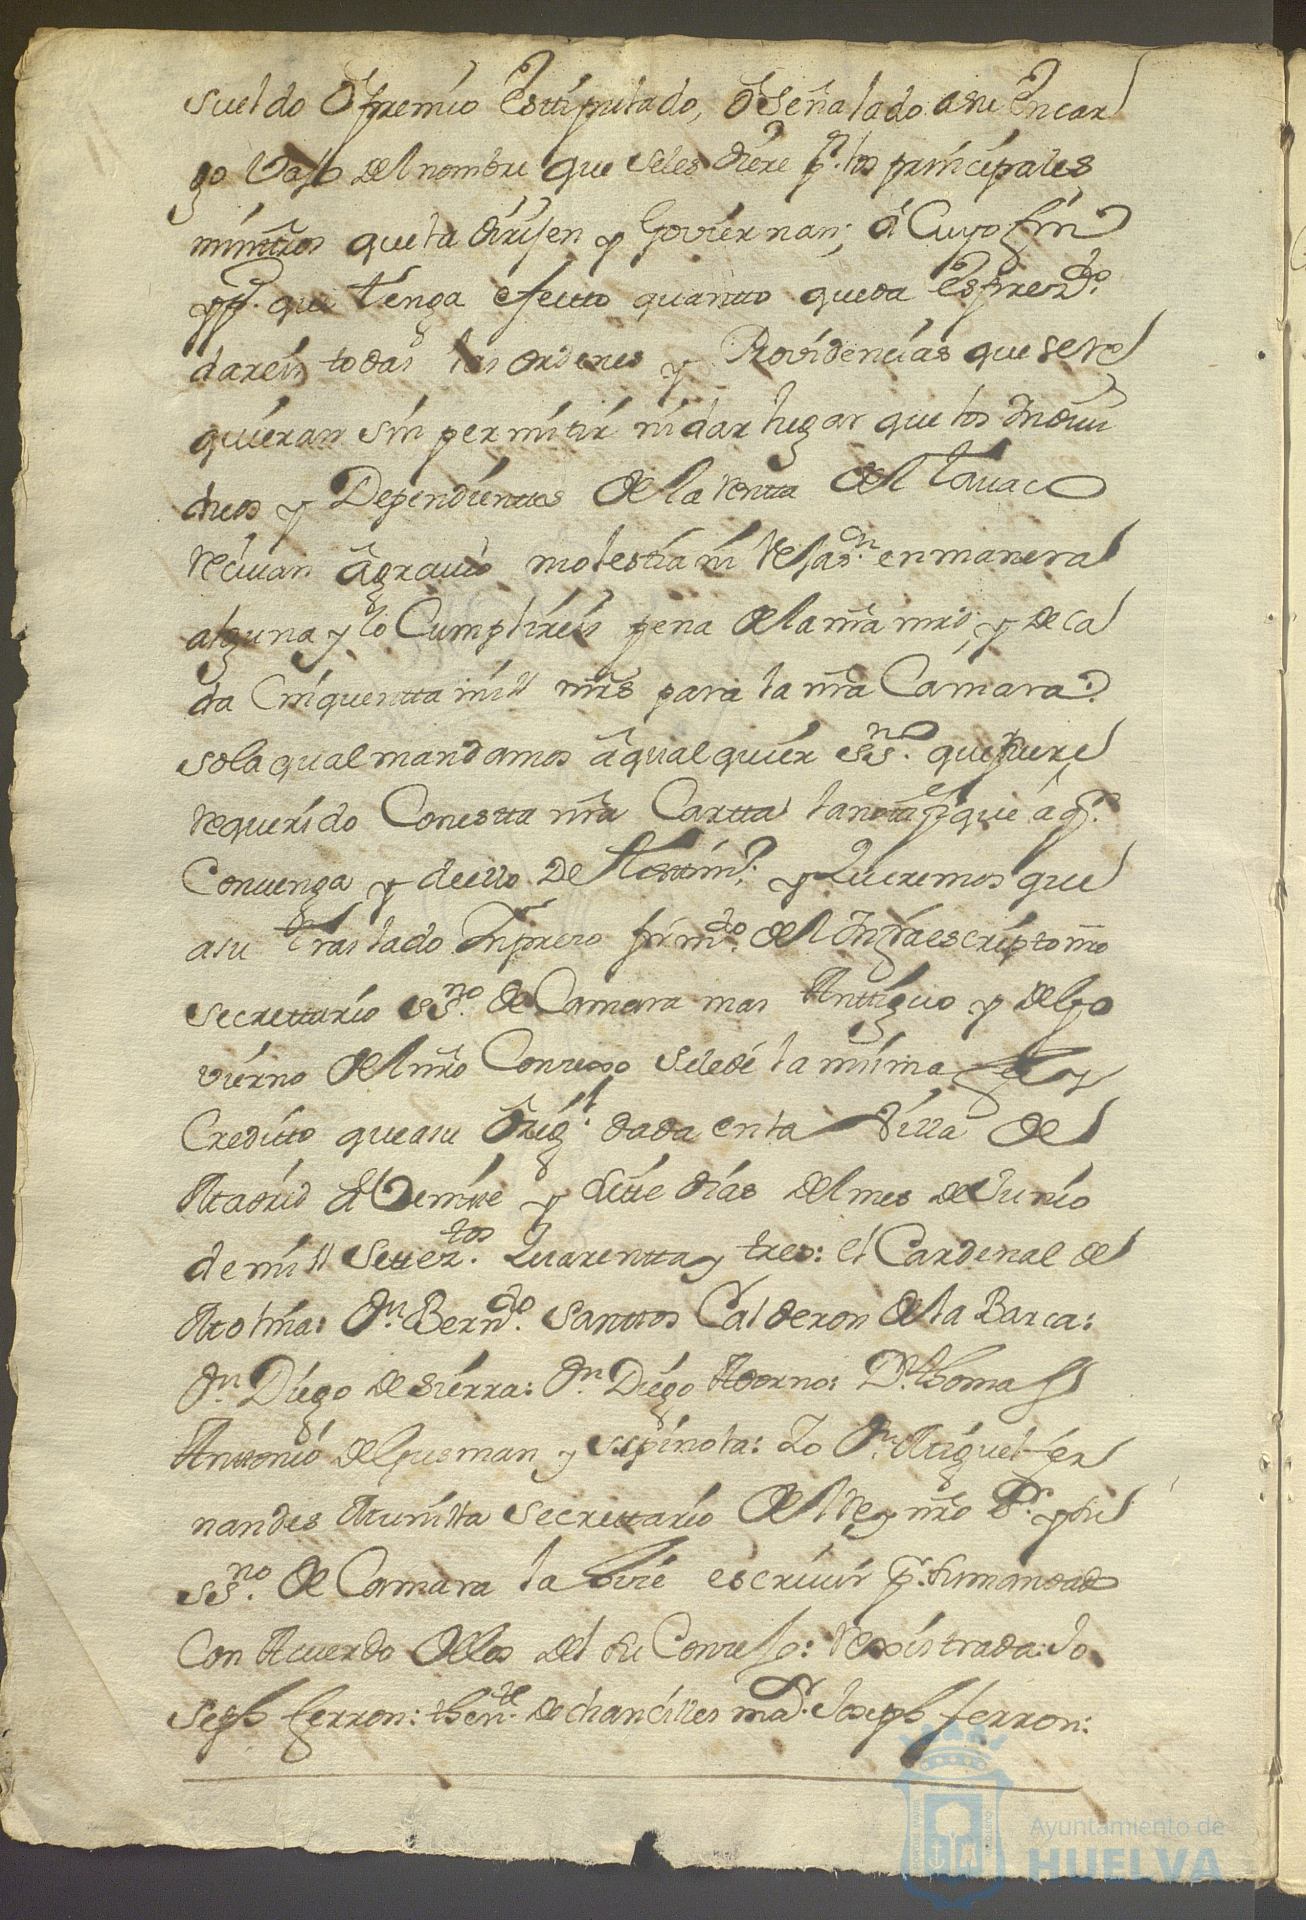 sueldo ò premio Estipulado, ò Señalado a su Encar
go vajo del nombre que seles diere p.r los principales
ministros que la dirijen y Goviernan; à Cuyo fin
y p.a que tenga efecto quantto queda Espres.do
dareis todas las ordenes y Providencias que se re
quieran sin permitir ni dar lugar que los Indivi
duos y Dependienttes de la Rentta del Tavaco
recivan àgravio molestia ni Vejaz.on en manera
alguna y lo Cumplireis pena de la nra mrd, y de ca
da Cinquentta mill mrs para la nra Camara:
sola qual mandamos à qual quier ss.no que fuere
requerido Con estta nra Cartta la notifiq.e à q.n
Convenga y de ello de Testtim.o: y Queremos que
a su traslado Impreso firm.do del Infraescripto nro
Secrettario ss.no de Camara mas Anttiguo y de Go
vierno del nro Consejo sele dè la misma fee y
Creditto que a su òrig.l dada en la Villa de
Madrid à Veintte y siette dias del mes de Junio
de mill Settez.tos Quarentta y tres: el Cardenal de
Molina: D.n Bern.do Santtos Calderon de la Barca:
D.n Diego de Sierra: D.n Diego Adorno: D.n Thomas
Anttonio de Gusman y Espinola: Yo D.n Miguel Fer
nandes Munilla Secrettario del Rey nro S.r y su
ss.no de Camara la hice escrivir p.r su mandado
Con Acuerdo de los del su Consejo: Rexistrada: Jo
seph Ferron: then.te de chanciller ma.r Joseph Ferron:
Ayuntamiento de
HUELVA